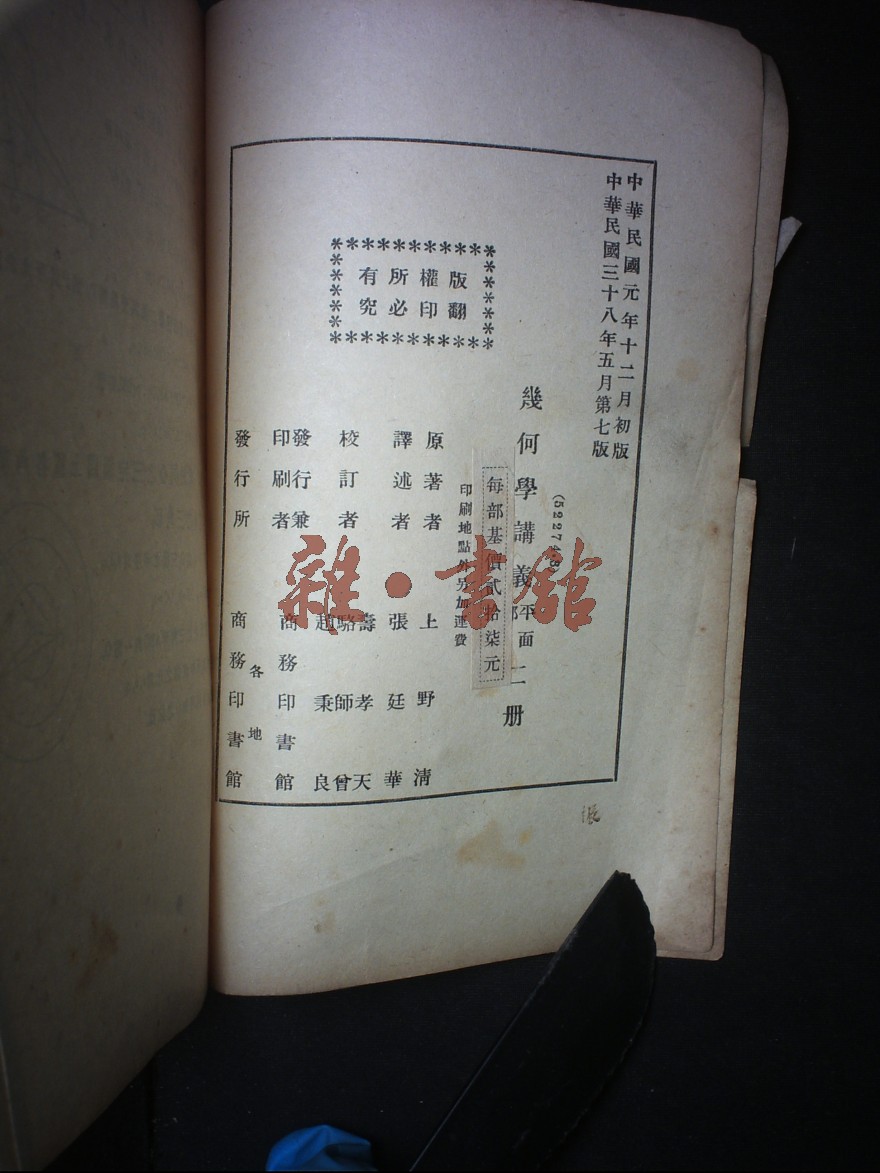 中華民國元年十二月初版
中華民國三十八年五月第七版
版權所有
翻印必究
(52274
幾何學講義 平面部 二册
每部基價貳拾柒元
印刷地點外另加運費
原著者 上野清
譯述者 張廷華
校訂者 壽孝天 駱師曾 趙秉良
發行兼印刷者 商務印書館
發行所 各地 商務印書館
雜·書館